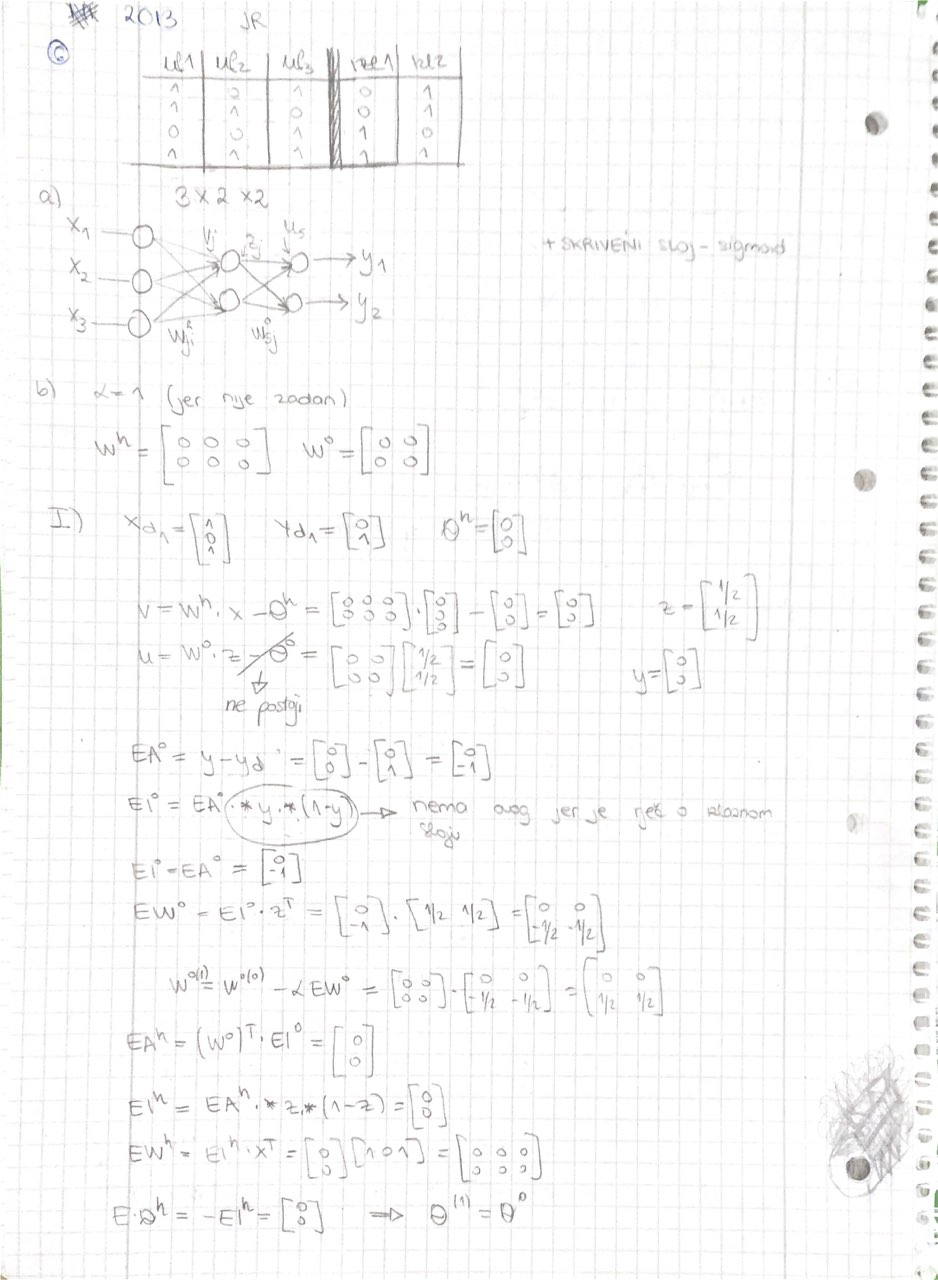 2013 JR
6
ul1 ul2 ul3 izl1 izl2
1 0 1 0 1
1 1 0 0 1
0 0 1 1 0
1 1 1 1 1
a) 3 x 2 x 2
x1 vj zj us y1
x2 + SKRIVENI sloj - sigmoid
x3 y2
Wji^h Wsj^o
b) α = 1 (jer nije zadan)
W^h = [0 0 0; 0 0 0] W^o = [0 0; 0 0]
I) Xd1 = [1; 0; 1] Yd1 = [0; 1] θ^h = [0; 0]
V = W^h · x - θ^h = [0 0 0; 0 0 0] · [0; 0; 0] - [0; 0] = [0; 0] z = [1/2; 1/2]
u = W^o · z - θ^o = [0 0; 0 0] [1/2; 1/2] = [0; 0] y = [0; 0]
ne postoji
EA^o = y - yd = [0; 0] - [0; 1] = [0; -1]
EI^o = EA^o .* y .* (1-y) → nema ovog jer je riječ o izlaznom
sloju
EI^o = EA^o = [0; -1]
EW^o = EI^o · z^T = [0; -1] · [1/2 1/2] = [0 0; -1/2 -1/2]
W^o(1) = W^o(0) - αEW^o = [0 0; 0 0] - [0 0; -1/2 -1/2] = [0 0; 1/2 1/2]
EA^h = (W^o)^T · EI^o = [0; 0]
EI^h = EA^h .* z .* (1-z) = [0; 0]
EW^h = EI^h · x^T = [0; 0] [1 0 1] = [0 0 0; 0 0 0]
E·θ^h = -EI^h = [0; 0] ⇒ θ^(1) = θ^0